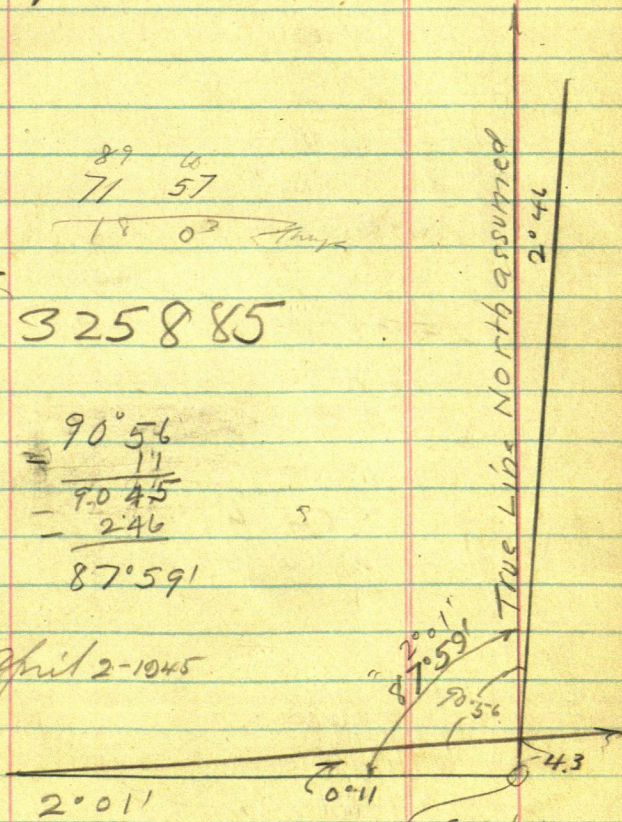 89
71 57
18 03
325885
90°56
- 11
90 45
- 2.46
87°59'
April 2-1945
2°01'
True Line North assumed
2°46
2°01'
87°59'
90°56
0°11
4.3